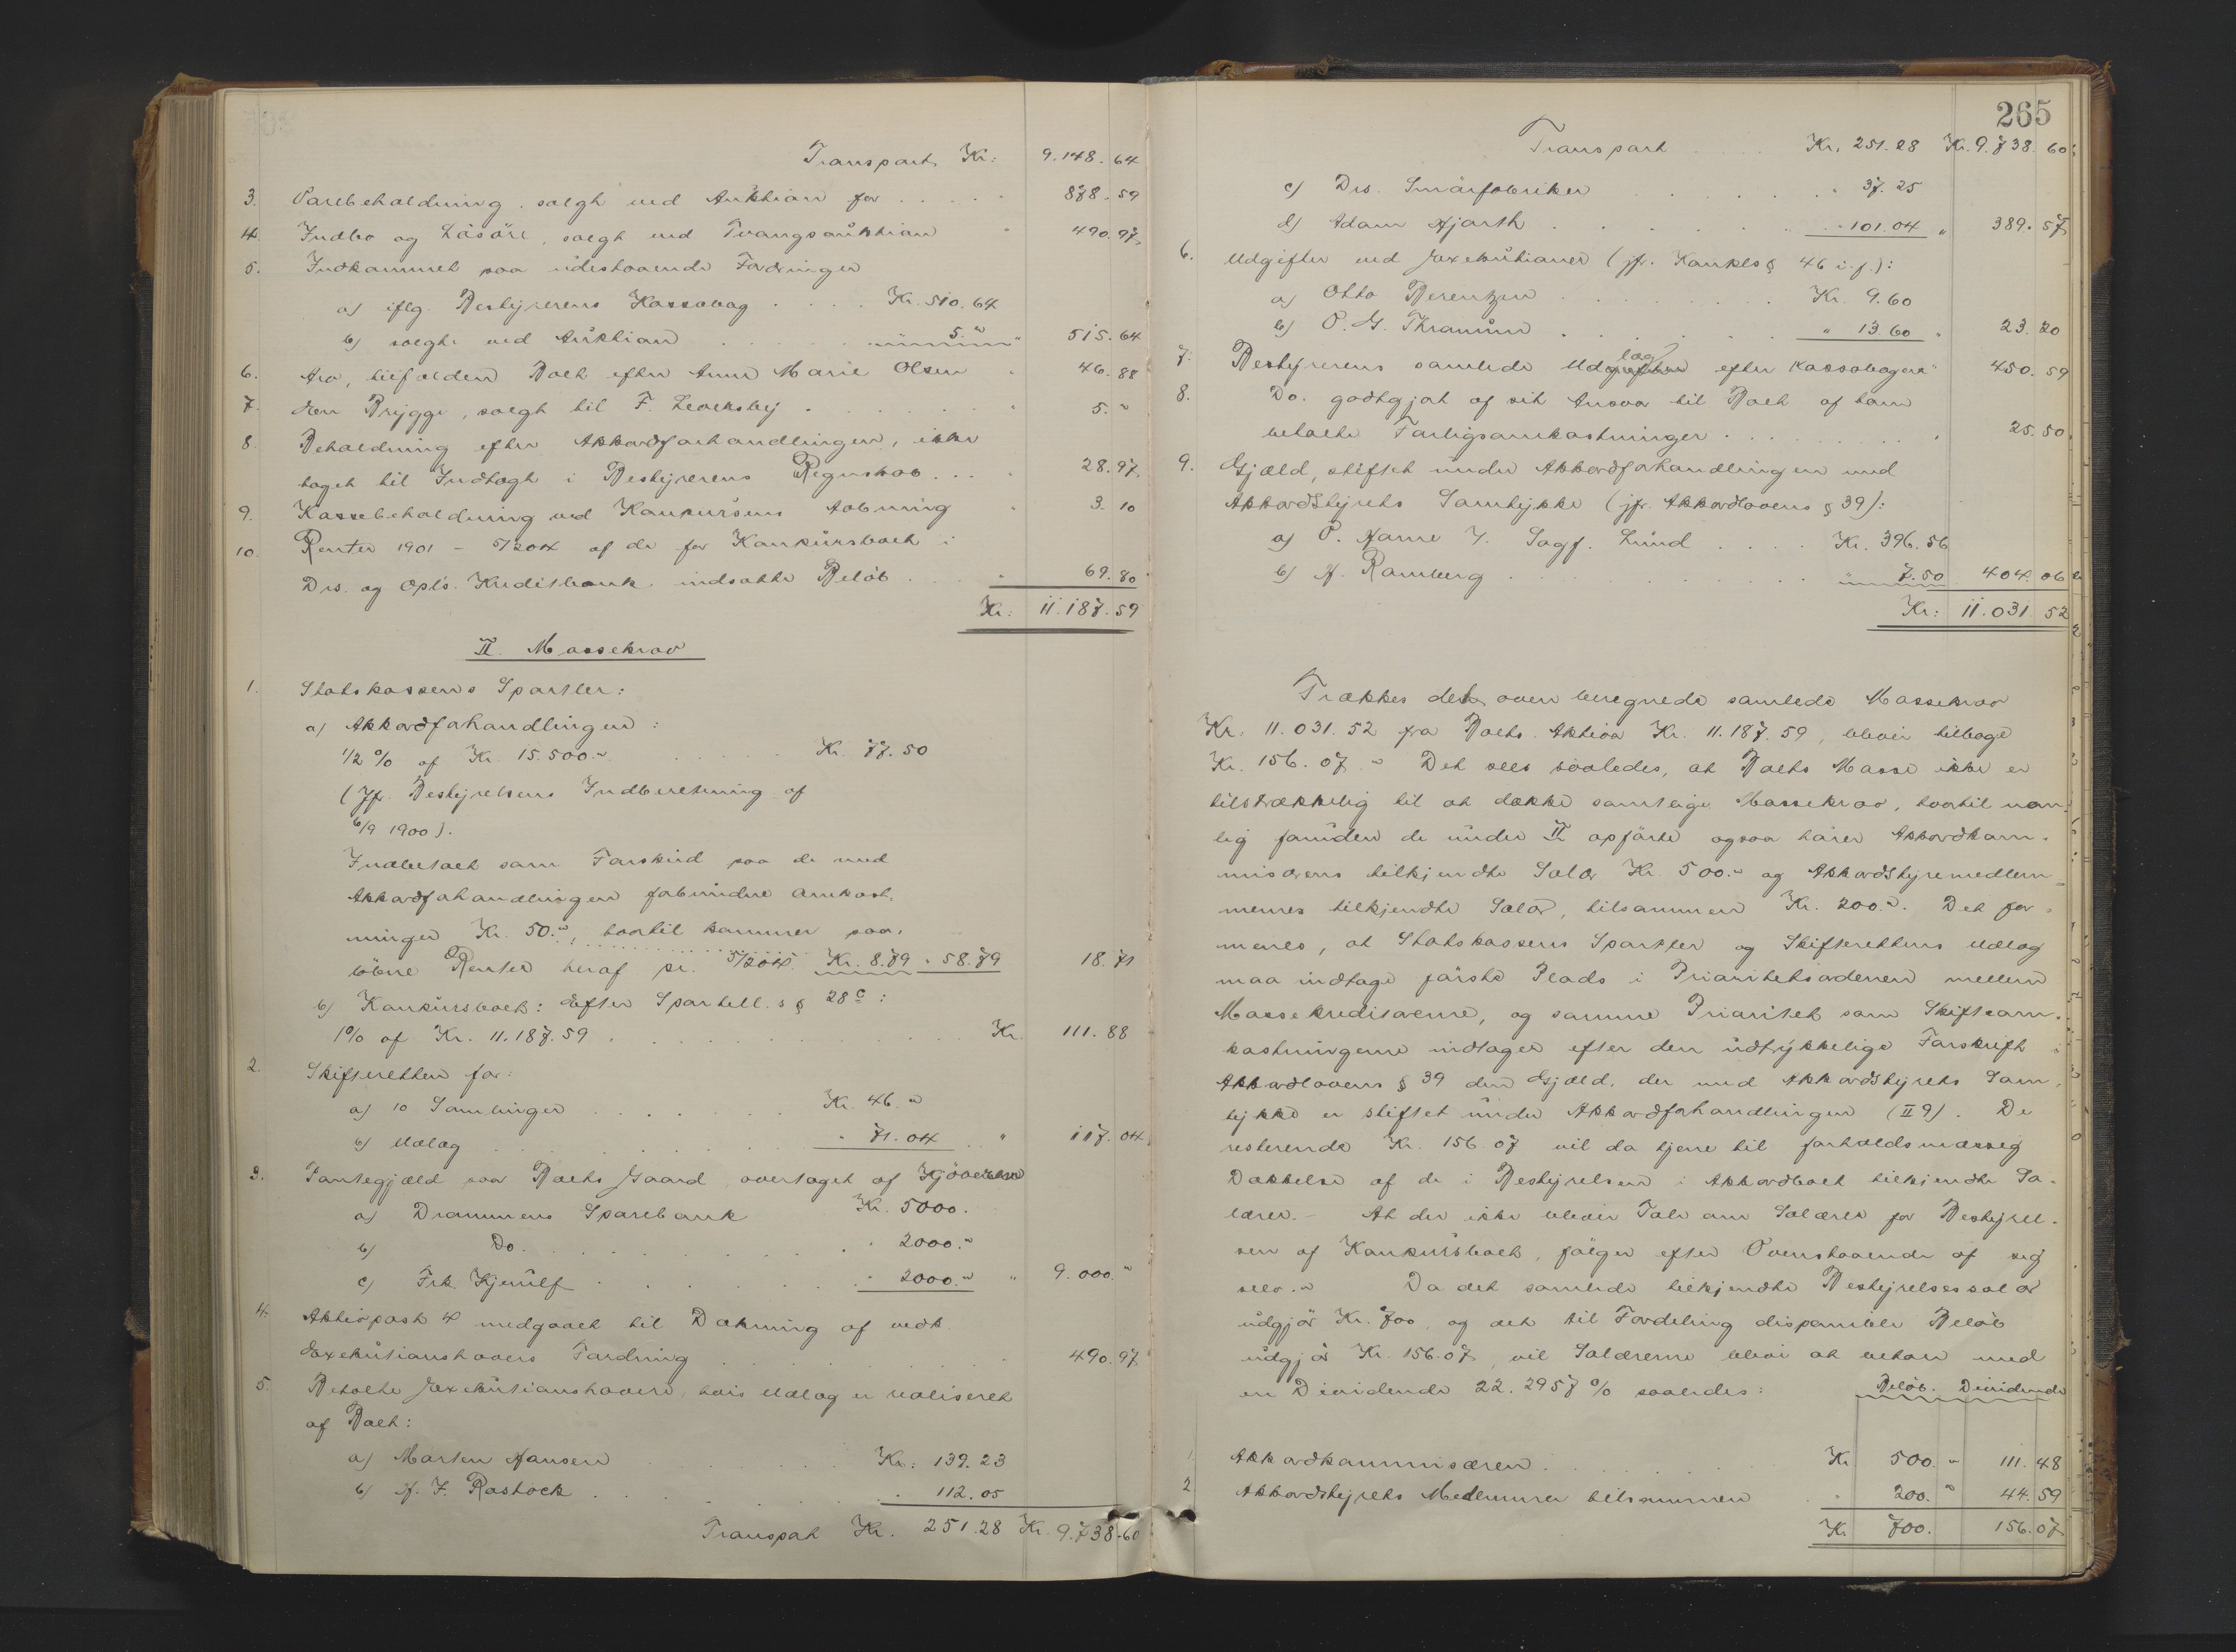 Transport Kr: 9.148.64
3. Varebeholdning, solgt ved Auktion for . . . . 878.59
4. Indbo og Løsøre, solgt ved Tvangsauktion " 490.97
5. Indkommet paa udestaaende Fordringer
a) iflg. Bestyrerens Kassabog . . . . Kr. 510.64
b) solgte ved Auktion . . . . " 5." " 515.64
6. Arv, tilfalden Boet efter Anne Marie Olsen " 46.88
7. En Brygge, solgt til F. . . . . . " 5."
8. Beholdning efter Akkordforhandlingen, ikke
taget til Indtægt i Bestyrerens Regnskab . . . " 28.97
9. Kassebeholdning ved Konkursens Aabning " 3.10
10. Renter 1901 - 5/2 04 af de for Konkursboet i
Drs. og Opl's. Kreditbank indsatte Beløb . . . " 69.80
Kr: 11.187.59
II. Massekrav
1. Statskassens Sportler:
a) Akkordforhandlingen:
1/2 % af Kr. 15.500." . . . . Kr. 77.50
(Jfr. Bestyrelsens Indberetning af
6/9 1900).
Indbetalt som Forskud paa de med
Akkordforhandlingen forbundne Omkost-
ninger Kr. 50.", hvortil kommer paa-
løbne Renter heraf pr. 5/2 04. Kr. 8.79 " 58.79 18.71
b) Konkursboet: Efter Sportell. s § 28 c:
1% af Kr. 11.187.59 . . . . . Kr. 111.88
2. Skifteretten for:
a) 10 Samlinger . . . . . Kr. 46."
b) Udlæg . . . . " 71.04 . . " 117.04
3. Pantegjæld paa Boets Gaard, overtaget af Kjøberen
a) Drammens Sparebank Kr. 5000.
b) Do. . . . . . " 2000."
c) Frk. Kjerulf . . . . . " 2000." " 9.000."
4. Aktivpost 4 medgaaet til Dækning af vedk.
Exekutionshavers Fordring . . . . . 490.97
5. Betalte Exekutionshavere, hvis Udlæg er realiseret
af Boet:
a) Morten Hansen . . . . Kr: 139.23
b) H. J. Rostock . . . . . " 112.05
Transport Kr. 251.28 Kr. 9.738.60
265
Transport . . . Kr. 251.28 Kr. 9.738.60
c) Drs. Smørfabriker . . . . . " 37.25
d) Adam Hjorth . . . . . " 101.04 " 389.57
6. Udgifter ved Exekutioner (jfr. Konkls § 46 i.f.):
a) Otto Berentzen . . . . . Kr. 9.60
b) O. G. Thranum . . . . . " 13.60 " 23.20
7. Bestyrerens samlede Udgifter læg efter Kassabogen " 450.59
8. Do. godtgjort af sit Ansvar til Boet af ham
betalte Forligsomkostninger . . . . . " 25.50
9. Gjæld, stiftet under Akkordforhandlingen med
Akkordstyrets Samtykke (jfr. Akkordlovens § 39):
a) P. Hanne J. Sagf. Lund . . . . Kr. 396.56
b) H. Ramberg . . . . . " 7.50 404.06
Kr: 11.031.52
Trækkes det oven beregnede samlede Massekrav
Kr. 11.031.52 fra Boets Aktiva Kr. 11.187.59, bliver tilbage
Kr. 156.07." Det sees saaledes, at Boets Masse ikke er
tilstrækkelig til at dække samtlige Massekrav, hvortil nem-
lig foruden de under II opførte ogsaa hører Akkordkom-
misærens tilkjendte Salær Kr. 500." og Akkordstyremedlem-
mernes tilkjendte Salær, tilsammen Kr. 200.". Det for-
menes, at Statskassens Sportler og Skifterettens Udlæg
maa indtage første Plads i Prioritetsordenen mellem
Massekreditorerne, og samme Prioritet som Skifteom-
kostningerne indtager efter den udtrykkelige Forskrift i
Akkordlovens § 39 den Gjæld, der med Akkordstyrets Sam-
tykke er stiftet under Akkordforhandlingen (II 9). De
resterende Kr. 156.07 vil da tjene til forholdsmæssig
Dækkelse af de i Bestyrelsen i Akkordboet tilkjendte Sa-
lærer. - At der ikke bliver Tale om Salærer for Bestyrel-
sen af Konkursboet, følger efter Ovenstaaende af sig
selv." Da det samlede tilkjendte Bestyrelsessalær
udgjør Kr. 700, og det til Fordeling disponible Beløb
udgjør Kr. 156.07, vil Salærerne blive at betale med
en Dividende 22.2957 % saaledes: Beløb. Dividende
1. Akkordkommisæren . . . . . Kr 500." 111.48
2 Akkordstyrets Medlemmer tilsammen . " 200." 44.59
Kr 700. 156.07